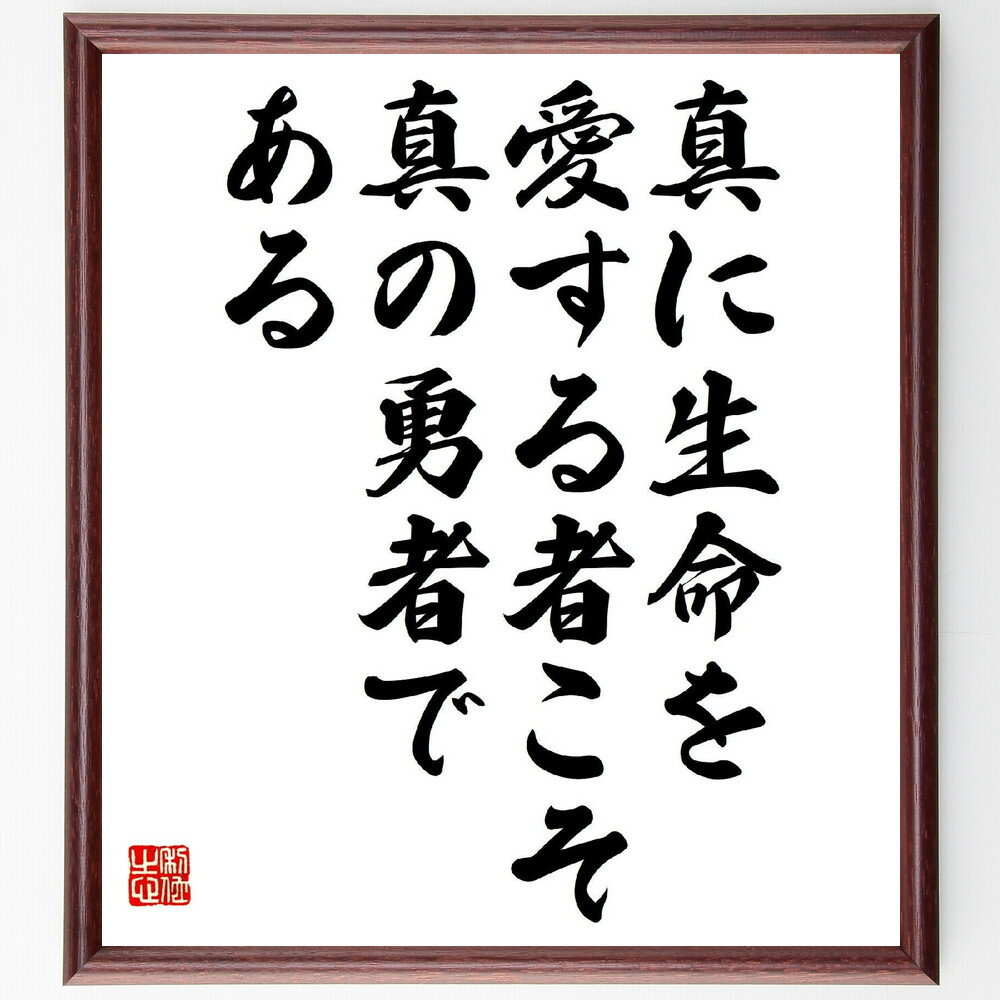 真に生命を
愛する者こそ
真の勇者で
ある